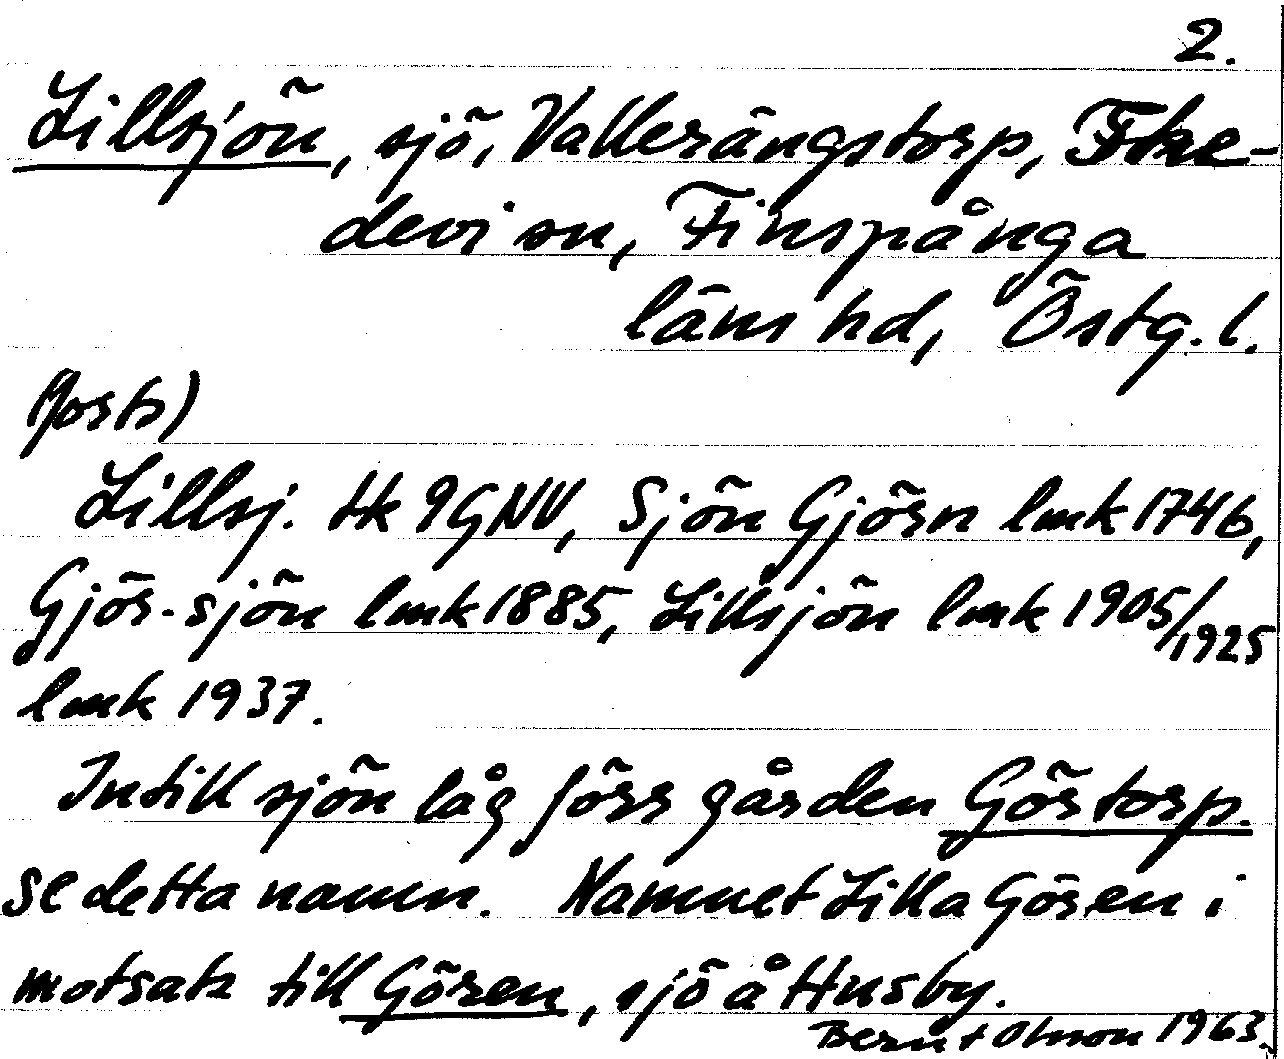 2.
Lillsjön, sjö, Vallerängstorp, Ske-
devi sn, Finspånga
läns hd, Östg. l.
(forts)
Lillsj. tk 9GNV, Sjön Gjörn lmk 1746,
Gjös-sjön lmk 1885, Lillsjön lmk 1905/1925
lmk 1937.
Intill sjön låg förr gården Göstorp.
se detta namn. Namnet Lilla Gösen i
motsats till Gösen, sjö å Husby.
Bernt Olsson 1963.